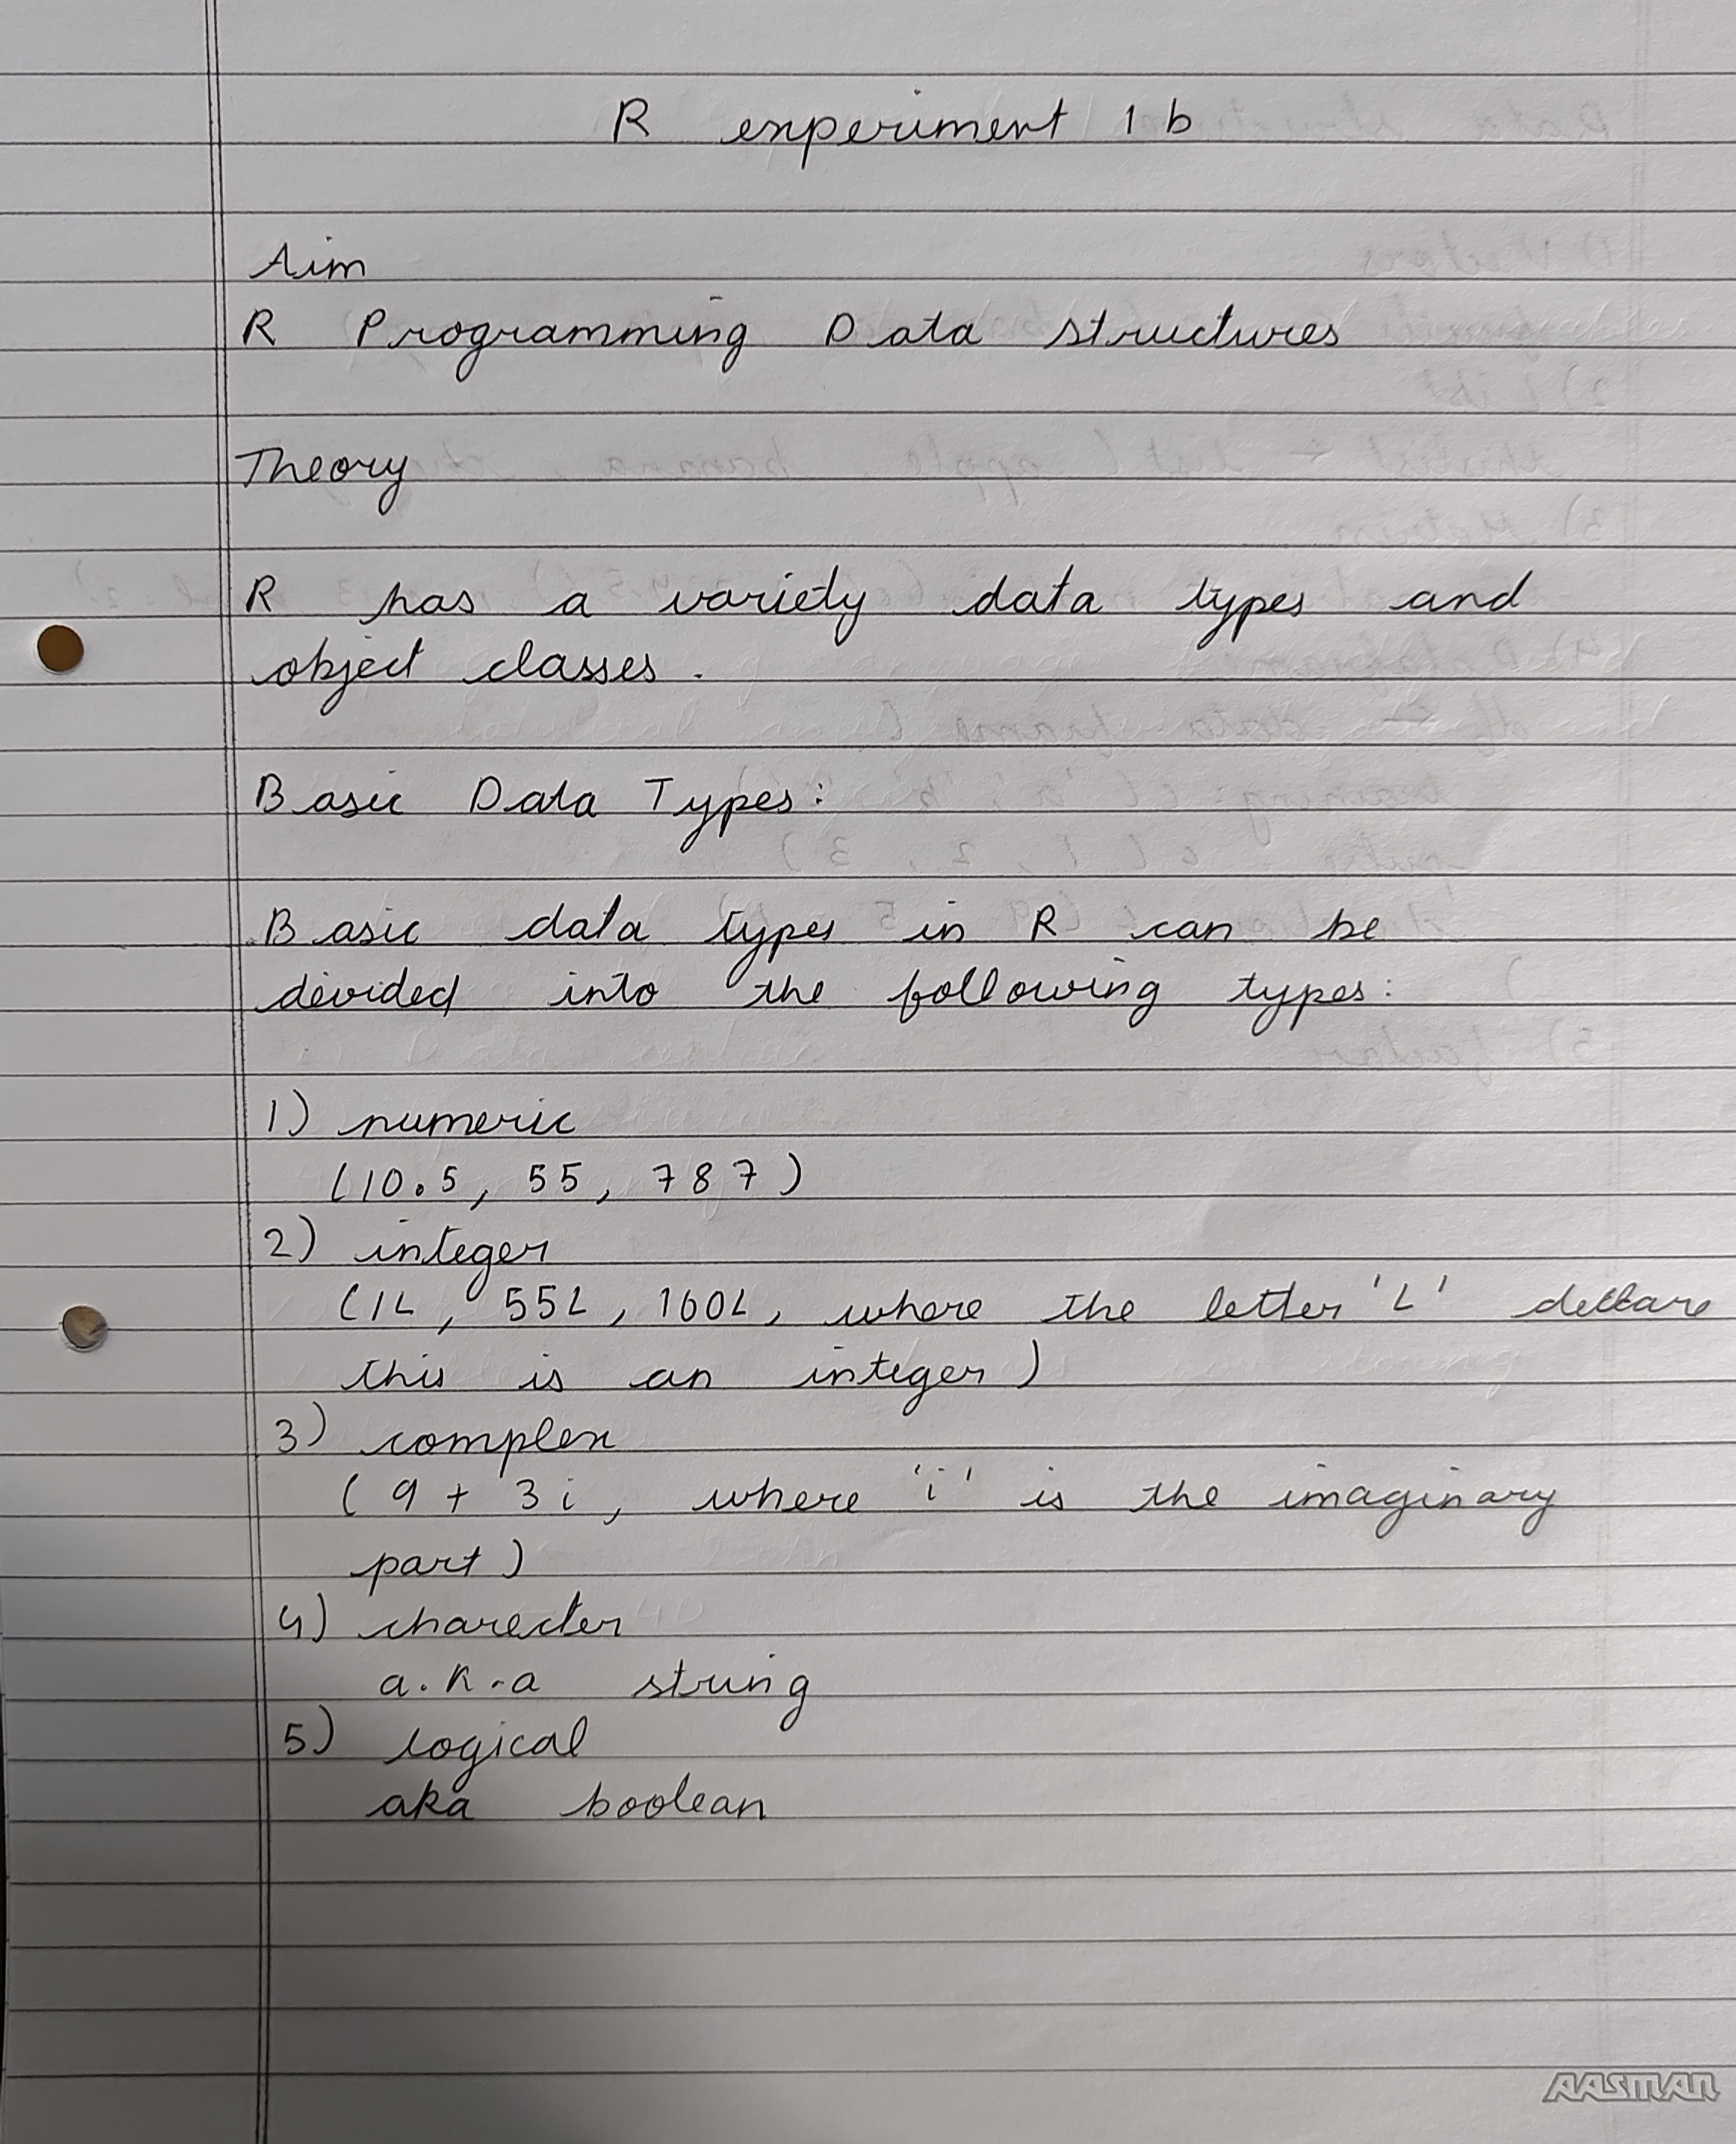 R experiment 1 b
Aim
R Programming Data structures
Theory
R has a variety data types and
object classes.
Basic Data Types:
Basic data types in R can be
devided into the following types:
1) numeric
(10.5, 55, 787)
2) integer
(1L, 55L, 160L, where the letter 'L'
this is an integer)
3) complex
(9 + 3i, where 'i' is the imaginary
part)
4) charecter
a.k.a string
5) logical
aka boolean
AASMAN